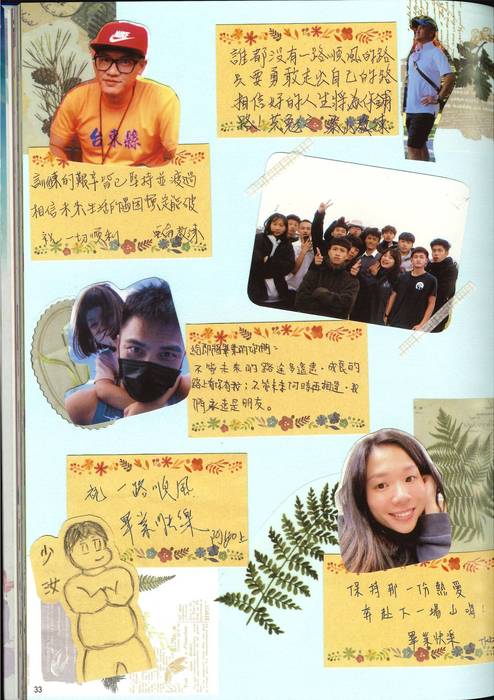 誰都沒有一路順風的路
只要勇敢走出自己的路
相信好的人生將為你開
路！
台東縣
訓練的艱辛皆已堅持並渡過
相信未來生活的困境定能破
祝一切順利
教練
給即將畢業的你們：
不管未來的路途多遙遠，成長的
路上有你有我；不管未來何時再相遇，我
們永遠是朋友。
祝 一路順風
畢業快樂
上
少
女
保持那一份熱愛
奔赴下一場山海！
畢業快樂
33